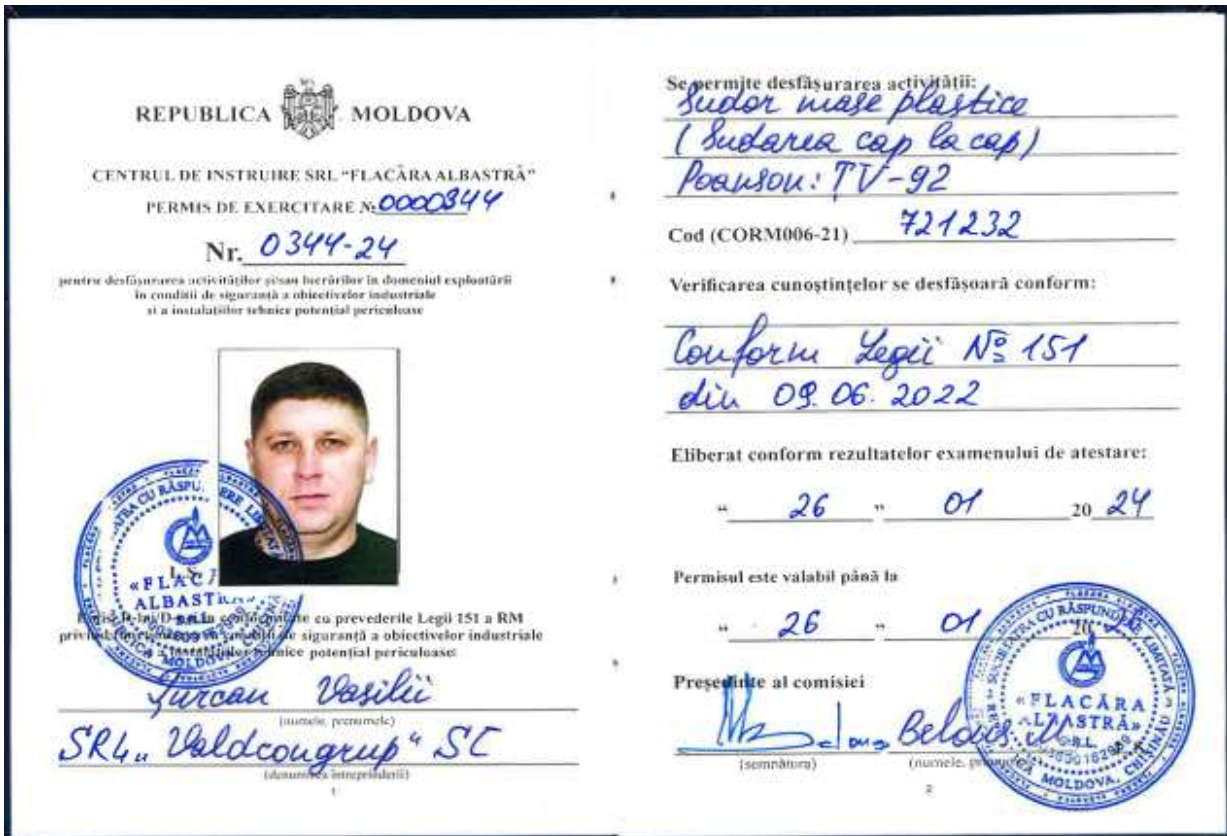 REPUBLICA MOLDOVA
CENTRUL DE INSTRUIRE SRL "FLACĂRA ALBASTRĂ"
PERMIS DE EXERCITARE № 0000344
Nr. 0344-24
pentru desfășurarea activităților și/sau lucrărilor în domeniul exploatării
în condiții de siguranță a obiectivelor industriale
și a instalațiilor tehnice potențial periculoase
L.Ș.
cu prevederile Legii 151 a RM
siguranță a obiectivelor industriale
tehnice potențial periculoase:
Țurcan Vasilii
(numele, prenumele)
SRL „Valdcongrup“ SC
(denumirea întreprinderii)
1
Se permite desfășurarea activității:
Sudor mase plastice
(Sudarea cap la cap)
Poanson: TV-92
Cod (CORM006-21) 721232
Verificarea cunoștințelor se desfășoară conform:
Conform Legii № 151
din 09.06.2022
Eliberat conform rezultatelor examenului de atestare:
“ 26 ” 01 20 24
Permisul este valabil până la
“ 26 ” 01 20 26
Președinte al comisiei
Belous M
(semnătura) (numele,
«FLACĂRA
ALBASTRĂ»
S.R.L.
MOLDOVA, CHIȘINĂU
2